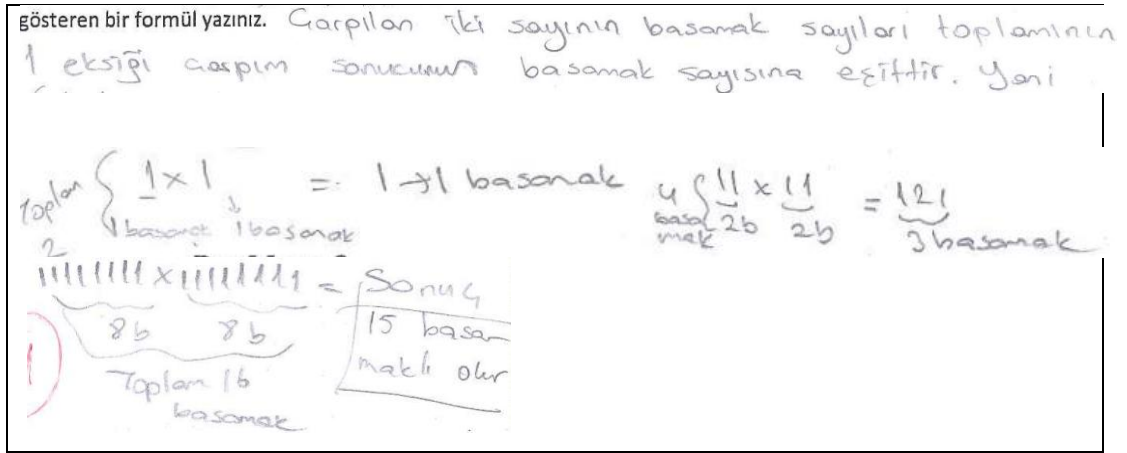 gösteren bir formül yazınız. Çarpılan iki sayının basamak sayıları toplamının
1 eksiği çarpım sonucunun basamak sayısına eşittir. Yani
Toplam 2 { 1 x 1 = 1 → 1 basamak
1 basamak 1 basamak
4 basamak { 11 x 11 = 121
2b 2b 3 basamak
11111111 x 11111111 = Sonuç
8b 8b 15 basa
maklı olur
Toplam 16
basamak
1